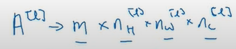 A^[l] → m × n_H^[l] × n_W^[l] × n_c^[l]